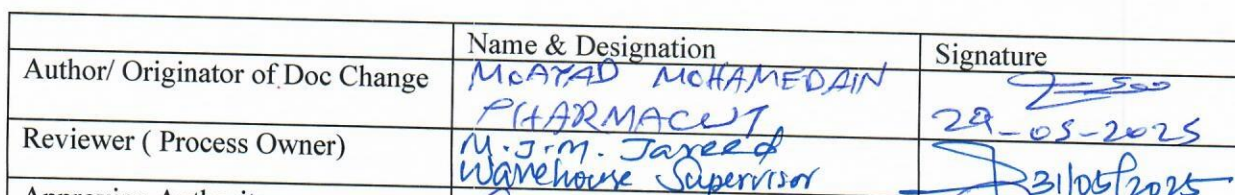 Name & Designation Signature
Author/ Originator of Doc Change MOAYAD MOHAMEDAIN
PHARMACIST 29-05-2025
Reviewer ( Process Owner) M.J.M. Jareed
Warehouse Supervisor 31/05/2025